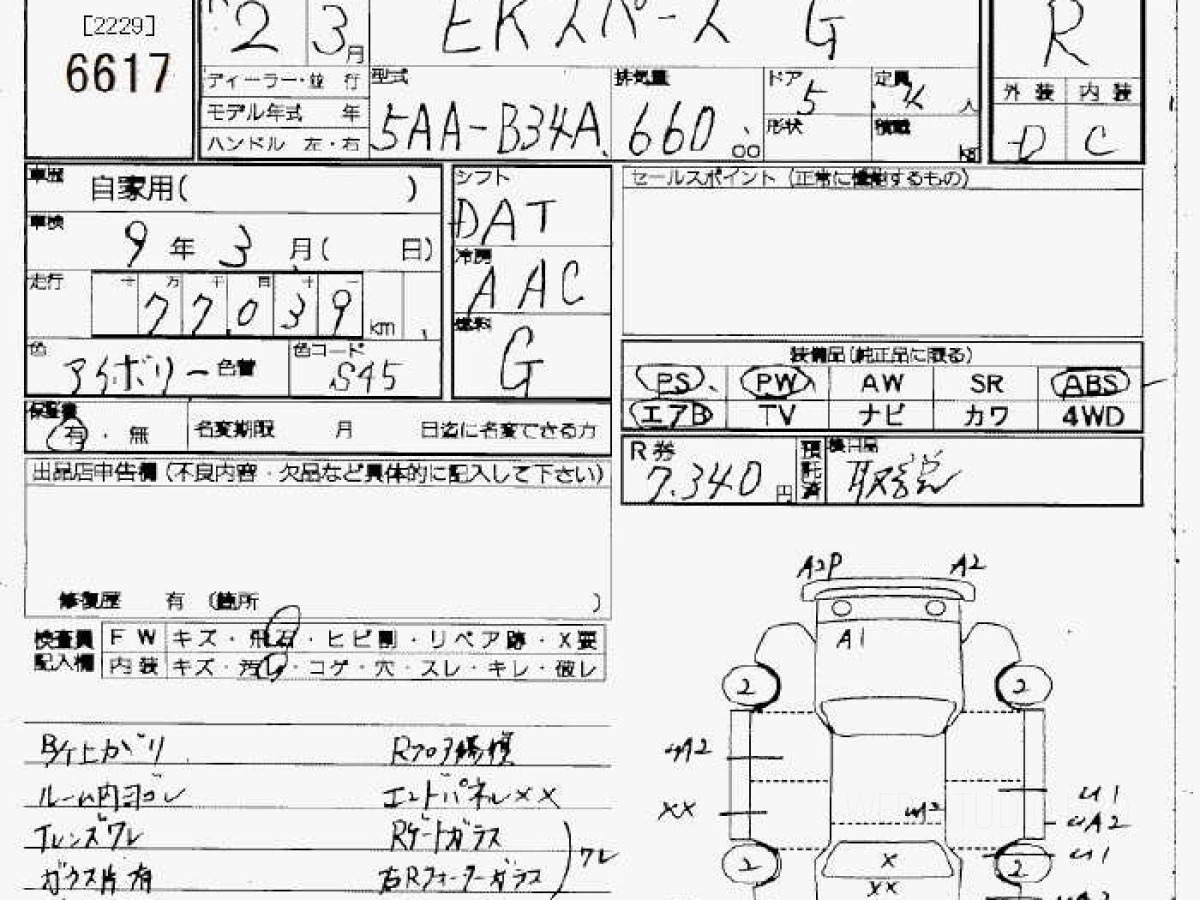 [2229]
6617
2 3月
EKスペース G
R
ディーラー・並 行
モデル年式 年
ハンドル 左・右
型式
5AA-B34A
排気量
660 00
ドア
5
形状
定員
4 人
積載
kg
外装 内装
D C
車歴
自家用( )
車検
9年3月( 日)
走行
十 万 千 百 十 一
77039 km
色
アイボリー 色替
色コード
S45
シフト
DAT
冷房
AAC
燃料
G
セールスポイント (正常に機能するもの)
装備品(純正品に限る)
PS PW AW SR ABS
エアB TV ナビ カワ 4WD
保証書
有・無
名変期限 月 日迄に名変できる方
R券
7,340円
預託済
後日品
取説
出品店申告欄(不良内容・欠品など具体的に記入して下さい)
修復歴 有 (箇所 )
検査員記入欄
FW キズ・飛石・ヒビ割・リペア跡・X要
内装 キズ・汚れ・コゲ・穴・スレ・キレ・破レ
ルーム内ヨゴレ
レンズワレ
ガラス片有
Rフロア損傷
エンドパネルXX
Rゲートガラス
右Rフォーターガラス
ワレ
A2P A2
A1
2 2
UA2
XX
U1
UA2
U1
2 2
X
XX